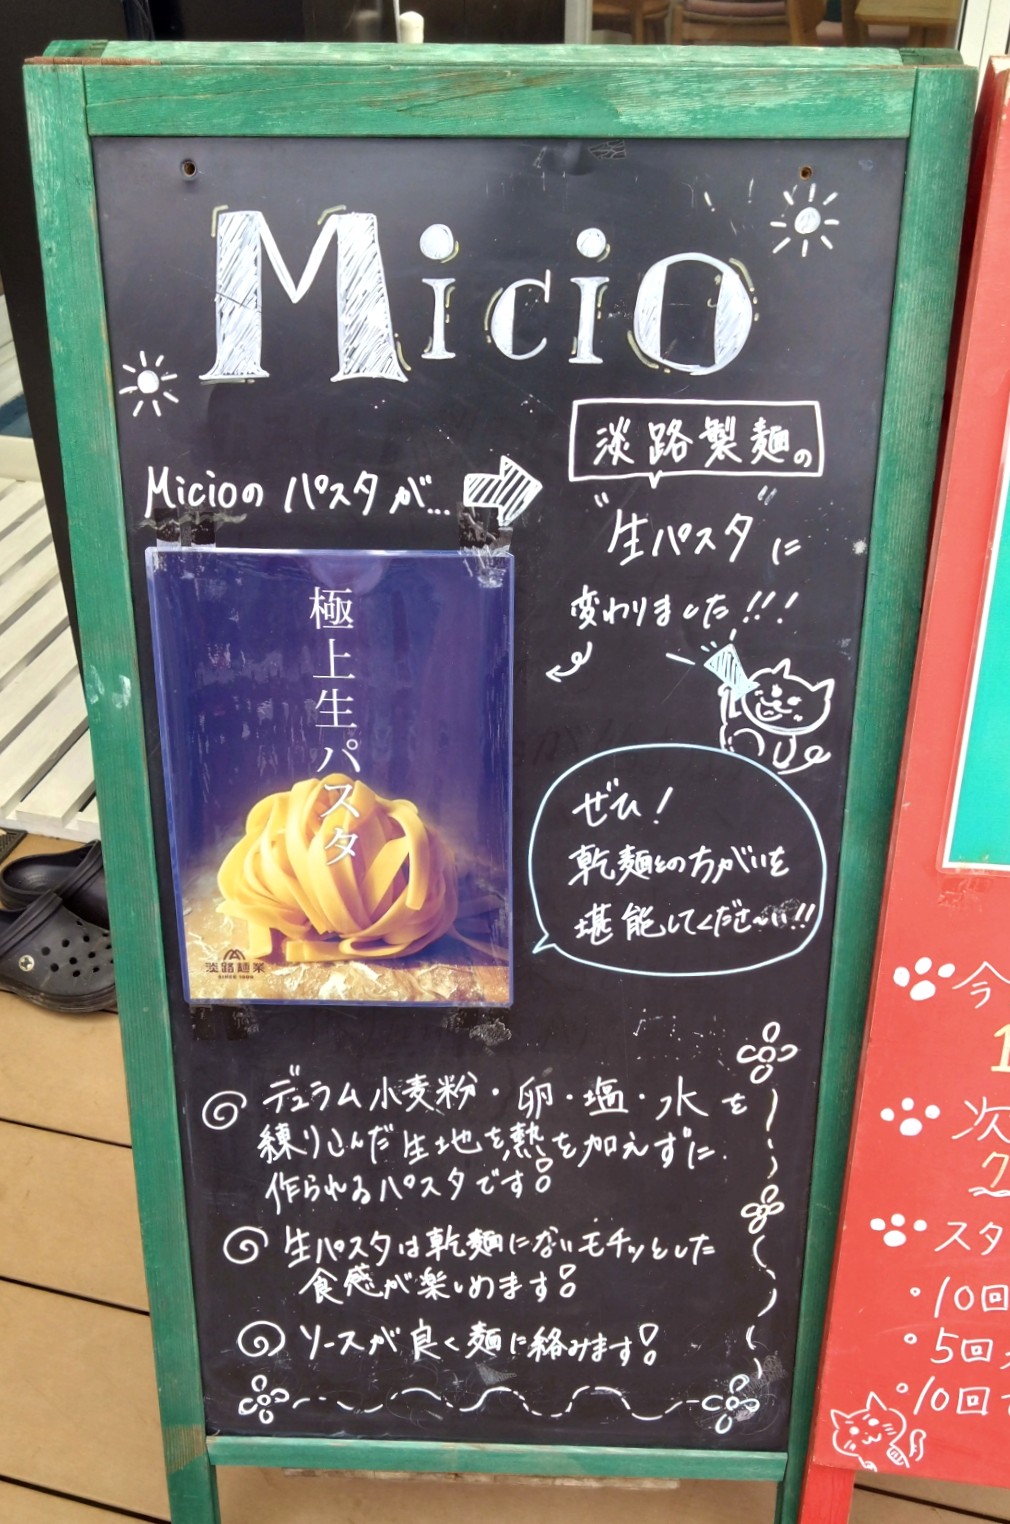 Micio
Micioの パスタが…
淡路製麺の
"生パスタ"に
変わりました!!!
極上生パスタ
淡路麺業
SINCE 1909
ぜひ!
乾麺とのちがいを
堪能してくださ〜い!!
デュラム小麦粉・卵・塩・水を
練り込んだ生地を熱を加えずに
作られるパスタです!
生パスタは乾麺にないモチッとした
食感が楽しめます!
ソースが良く麺に絡みます!
今
1
次
ク
スタ
・10回
・5回
・10回